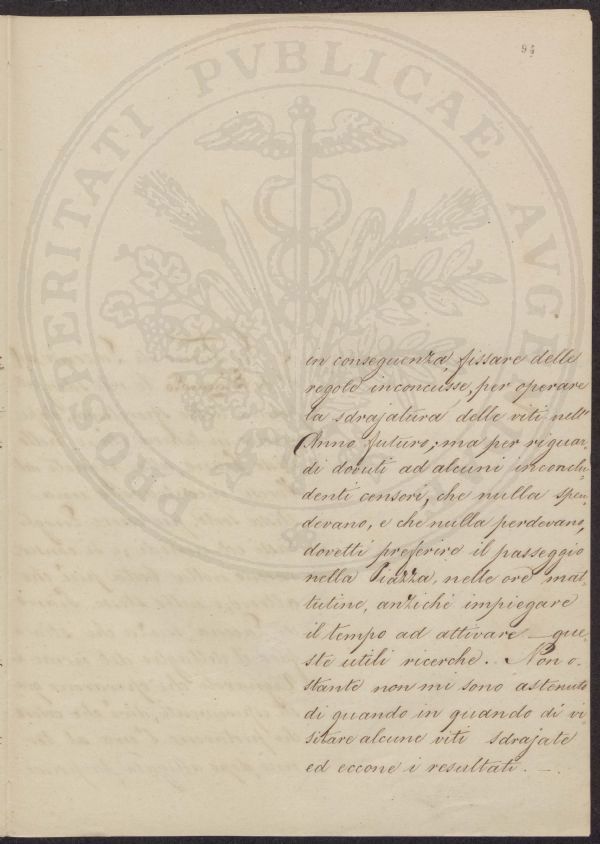 94
PROSPERITATI PVBLICAE AVGE
in conseguenza, fissare delle
regole inconcusse, per operare
la sdrajatura delle viti nell'
Anno futuro; ma per riguar-
di dovuti ad alcuni inconclu-
denti censori, che nulla spen-
devano, e che nulla perdevano,
dovetti preferire il passeggio
nella Piazza, nelle ore mat-
tutine, anziché impiegare
il tempo ad attivare que-
ste utili ricerche. Non o-
stante non mi sono astenuto
di quando in quando di vi-
sitare alcune viti sdrajate
ed eccone i resultati. —